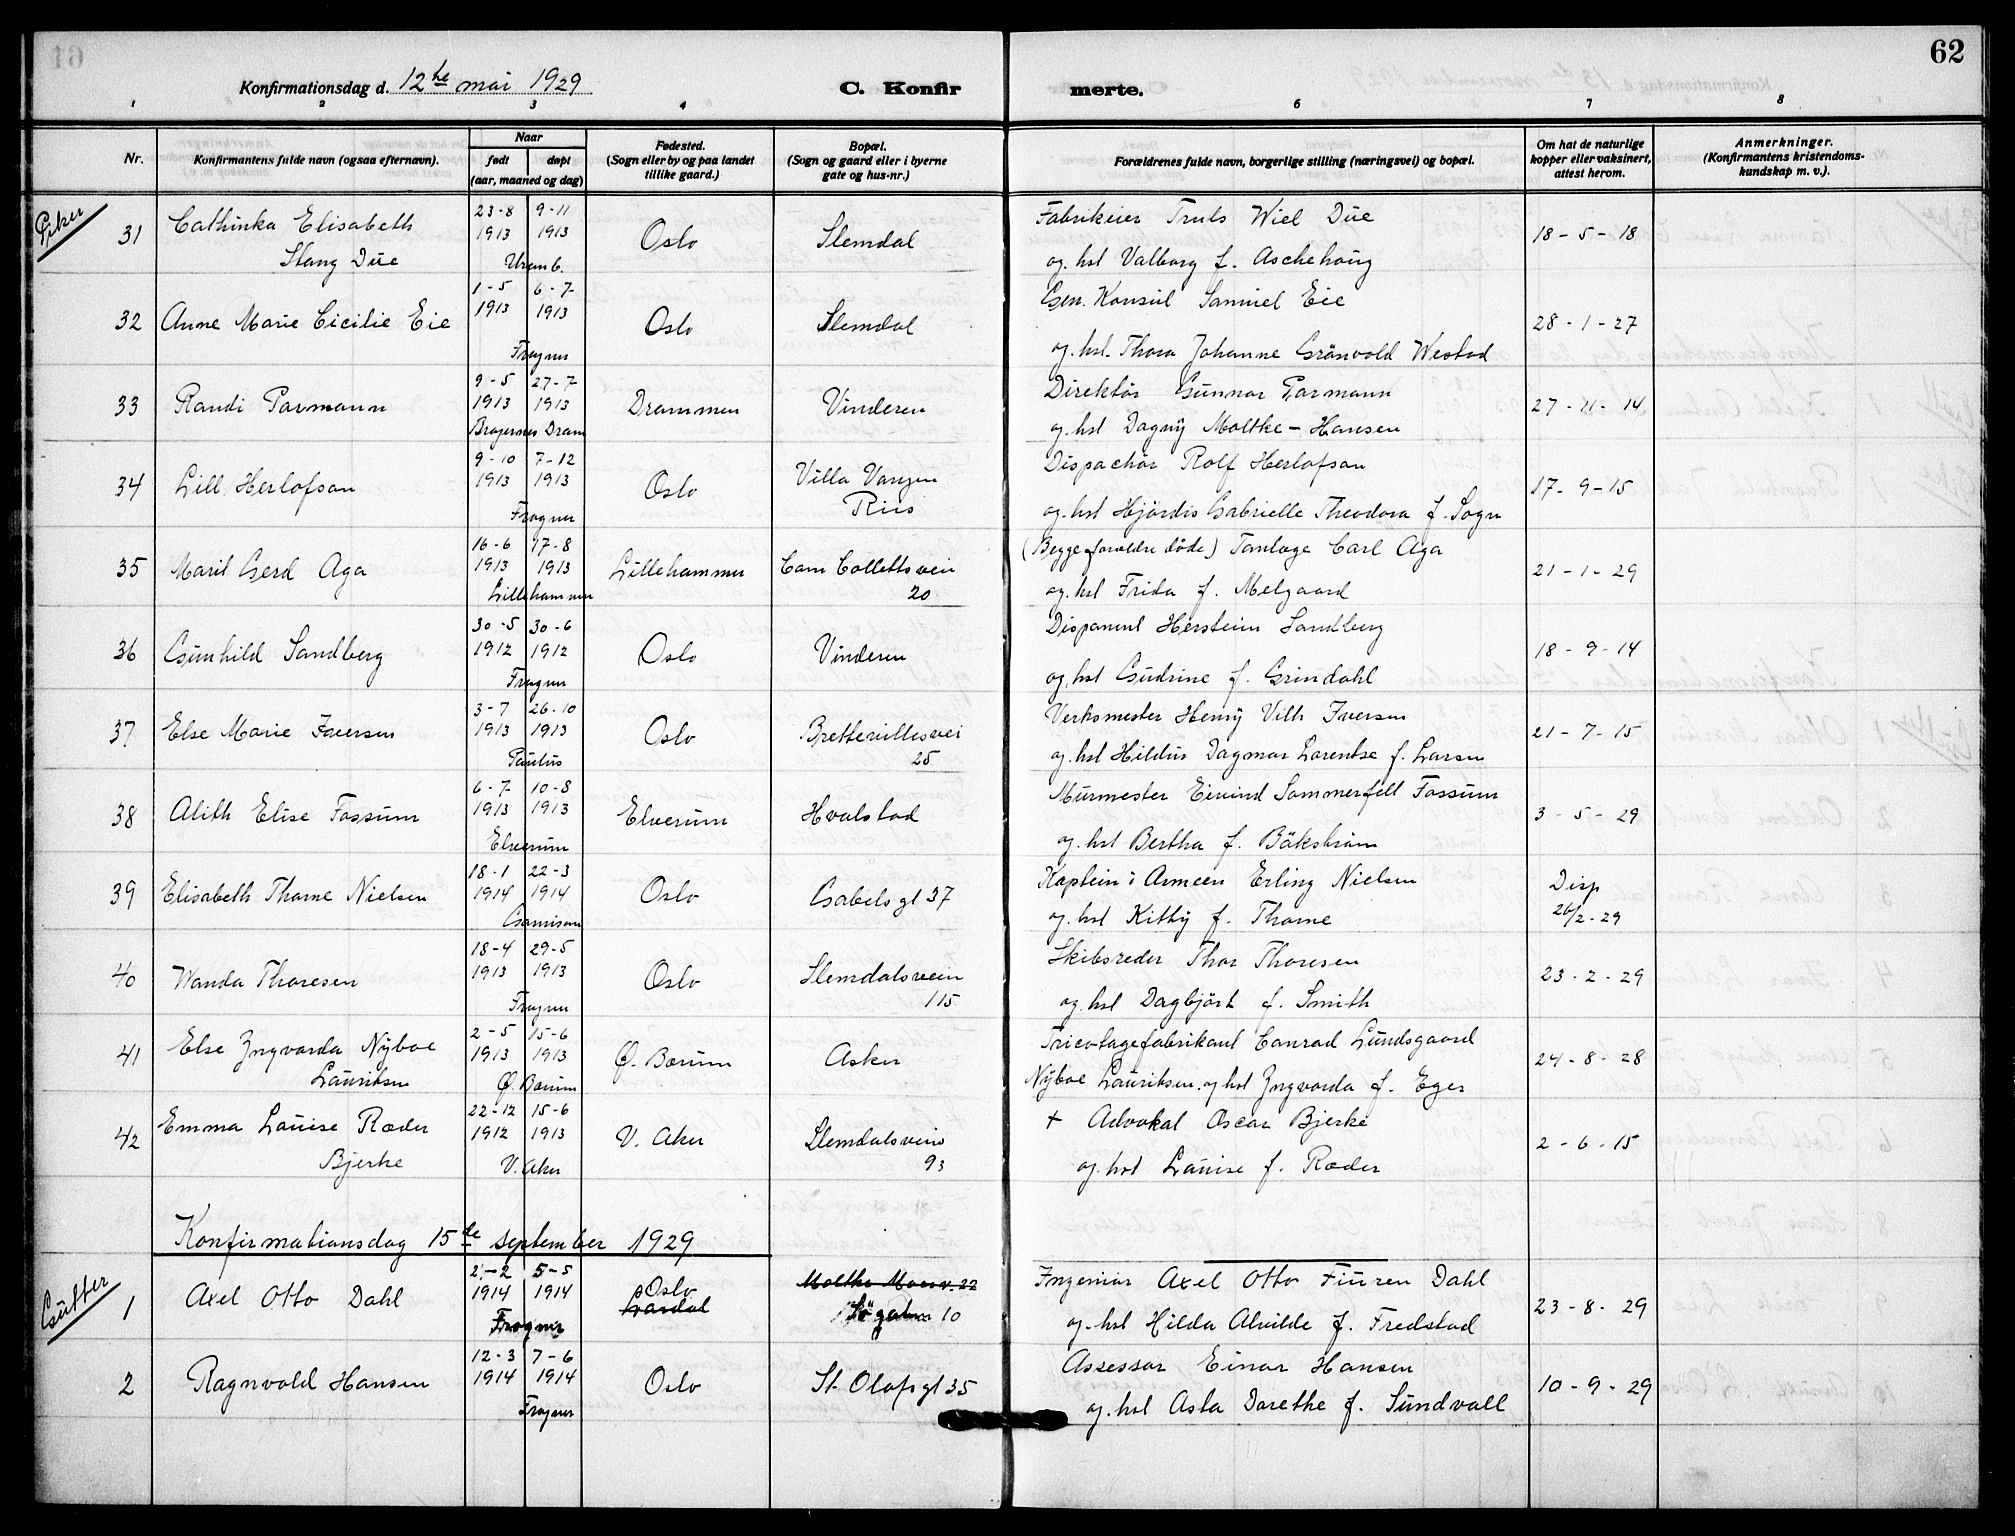 62
Konfirmationsdag d. 12te mai 1929
C. Konfirmerte.
1 2 3 4 5 6 7 8
Nr.
Konfirmantens fulde navn (ogsaa efternavn).
Naar
født døpt
(aar, maaned og dag)
Fødested.
(Sogn eller by og paa landet
tillike gaard.)
Bopæl.
(Sogn og gaard eller i byerne
gate og hus-nr.)
Forældrenes fulde navn, borgerlige stilling (næringsvei) og bopæl.
Om hat de naturlige
kopper eller vaksinert,
attest herom.
Anmerkninger.
(Konfirmantens kristendoms-
kundskap m. v.).
Piker
31 Cathinka Elisabeth 23-8 9-11 Fabrikeier Truls Wiel Due
Stang Due 1913 1913 Oslo Slemdal 18-5-18
Uranb. og hst Valborg f. Aschehoug
32 Anne Marie Cicilie Eie 1-5 6-7 Gen. Konsul Samuel Eie
1913 1913 Oslo Slemdal 28-1-27
Frogner og. hst. Thora Johanne Grönvold Westad
33 Randi Parmann 9-5 27-7 Direktör Gunnar Parmann
1913 1913 Drammen Vinderen 27-11-14
Bragernes Dram og. hst Dagny Moltke-Hansen
34 Lill Herlofson 9-10 7-12 Dispachör Rolf Herlofson
1913 1913 Oslo Villa Vangen Riis 17-9-15
Frogner og. hst Hjördis Gabrielle Theodora f. Sogn
35 Marit Gerd Aga 16-6 17-8 (Begge forældre döde) Tanlæge Carl Aga
1913 1913 Lillehammer Cam Colletts vei 20 21-1-29
Lillehammer og. hst Frida f. Melgaard
36 Gunhild Sandberg 30-5 30-6 Disponent Herstein Sandberg
1912 1912 Oslo Vinderen 18-9-14
Frogner og. hst Gudrine f. Grindahl
37 Else Marie Iversen 3-7 26-10 Verksmester Henry Vilh Iversen
1913 1913 Oslo Brettevillesvei 25 21-7-15
Paulus og. hst Hildur Dagmar Lorentse f. Larsen
38 Alith Elise Fossum 6-7 10-8 Murmester Eivind Sommerfelt Fossum
1913 1913 Elverum Hvalstad 3-5-29
Elverum og. hst Bertha f. Bäkström
39 Elisabeth Thorne Nielsen 18-1 22-3 Kaptein i Armeen Erling Nielsen
1914 1914 Oslo Gabels gt 37 Disp 26/2-29
Garnison og. hst Kitty f. Thorne
40 Wanda Thoresen 18-4 29-5 Skibsreder Thor Thoresen
1913 1913 Oslo Slemdalsvein 115 23-2-29
Frogner og hst Dagbjört f. Smith
41 Else Yngvarda Nyboe 2-5 15-6 Tricotagefabrikant Conrad Lundsgaard
Lauritsen 1913 1913 Ø. Bærum Asker 24-8-28
Ø. Bærum Nyboe Lauritsen. og hst Yngvarda f. Eger
42 Emma Louise Ræder 22-12 15-6 + Advokat Oscar Bjerke
Bjerke 1912 1913 V. Aker Slemdalsvein 93 2-6-15
V. Aker og. hst Louise f. Ræder
Konfirmationsdag 15de september 1929
Gutter
1 Axel Otto Dahl 2-2 5-5 Moltke Moesv. 22 Ingeniör Axel Otto Dahl
1914 1914 Oslo 10 23-8-29
Frogner og. hst Hilda Alvilde f. Fredstad
2 Ragnvald Hansen 12-3 7-6 Assessor Einar Hansen
1914 1914 Oslo St. Olafs gt 35 10-9-29
Frogner og. hst Asta Dorethe f. Sundvall